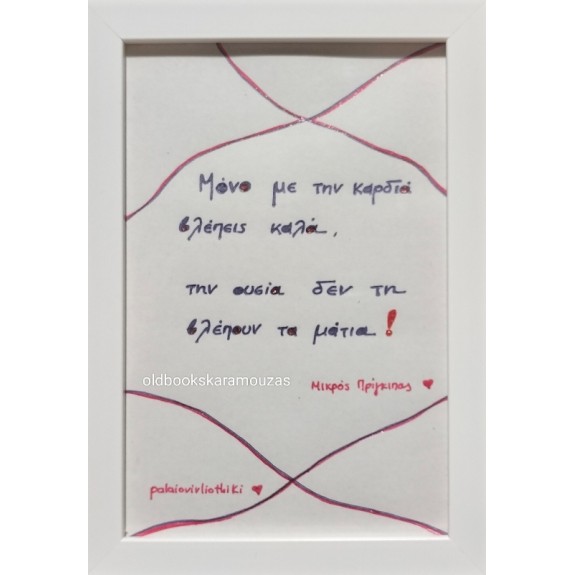 Μόνο με την καρδιά
βλέπεις καλά,
την ουσία δεν τη
βλέπουν τα μάτια!
oldbookskaramouzas
Μικρός Πρίγκιπας ♥
palaiovivliothiki ♥